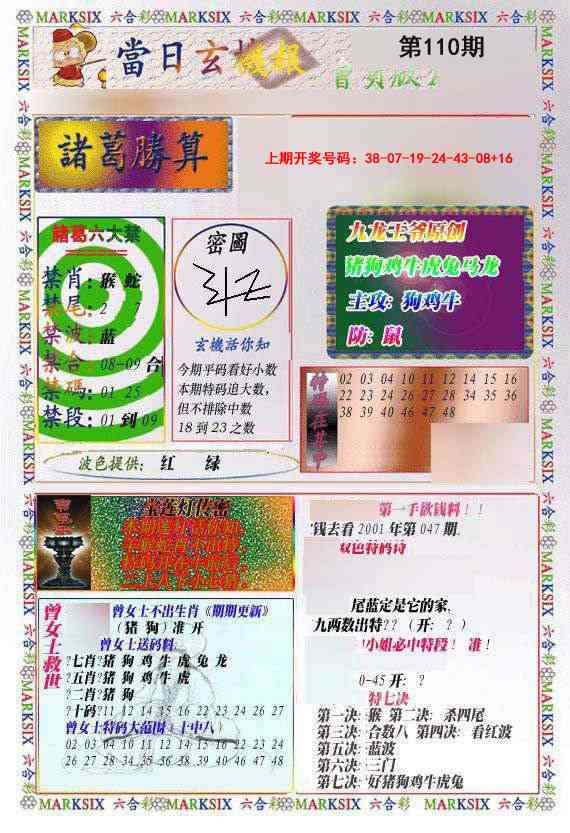 MARKSIX 六合彩 MARKSIX 六合彩 MARKSIX 六合彩 MARKSIX 六合彩 MARKSIX 六合彩
當日玄機報
第110期
諸葛勝算
上期开奖号码：38-07-19-24-43-08+16
諸葛六大禁
禁肖：猴 蛇
禁尾：2 7
禁波：蓝
禁合：08-09 合
禁碼：01 25
禁段：01 到 09
密圖
玄機話你知
今期平码看好小数
本期特码追大数，
但不排除中数
18 到 23 之数
九龙王爷原创
猪狗鸡牛虎兔马龙
主攻：狗鸡牛
防：鼠
02 03 04 10 11 12 14 15 16
22 23 24 26 27 28 34 35 36
38 39 40 46 47 48
波色提供： 红 绿
宝莲灯传密
曾女士救世
曾女士不出生肖《期期更新》
（猪 狗）准 开
曾女士送码料
?七肖?猪 狗 鸡 牛 虎 兔 龙
?五肖?猪 狗 鸡 牛 虎
?二肖?猪 狗
?十码?11 12 14 15 16 22 23 24 26 27
曾女士特码大范围（十中八）
02 03 04 10 11 12 14 15 16 22 23 24
26 27 28 34 35 36 38 39 40 46 47 48
第一手欲钱料！！
钱去看 2001 年第 047 期.
双色特码诗
尾蓝定是它的家,
九两数出特??（开：？）
小姐必中特段！ 准！
0-45 开：?
特七决
第一决：猴 第二决：杀四尾
第三决：合数八 第四决：看红波
第五决：蓝波
第六决：三门
第七决：好猪狗鸡牛虎兔
MARKSIX 六合彩 MARKSIX 六合彩 MARKSIX 六合彩 MARKSIX 六合彩 MARKSIX 六合彩